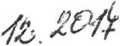 12. 2017